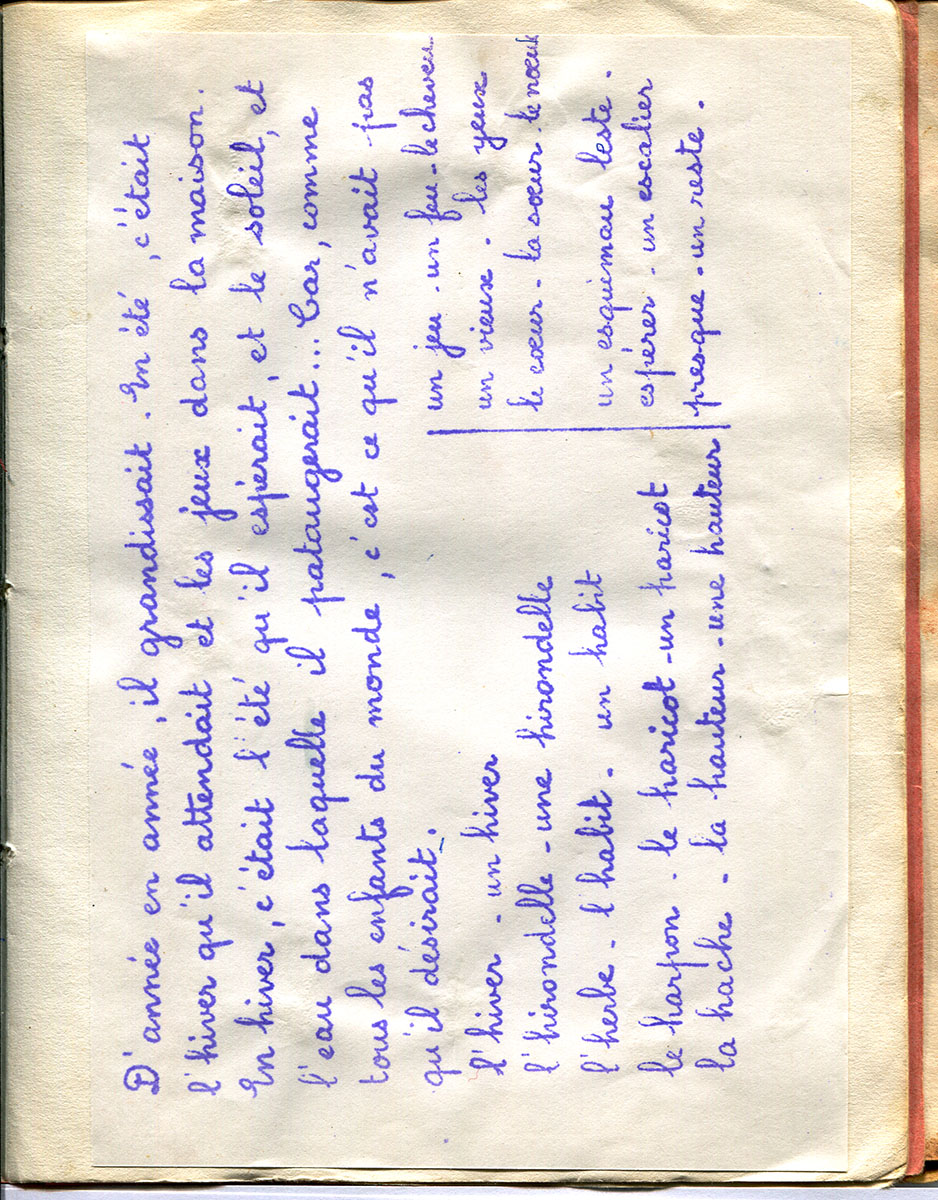 D'année en année, il grandissait. En été, c'était
l'hiver qu'il attendait et les jeux dans la maison.
En hiver, c'était l'été qu'il espérait, et le soleil, et
l'eau dans laquelle il pataugerait... Car, comme
tous les enfants du monde, c'est ce qu'il n'avait pas
qu'il désirait.
l'hiver - un hiver
l'hirondelle - une hirondelle
l'herbe - l'habit - un habit
le harpon - le haricot - un haricot
la hache - la hauteur - une hauteur
un jeu - un feu - le cheveu
un vieux - les yeux
le cœur - la sœur - le nœud
un esquimau leste.
espérer - un escalier
presque - un reste.